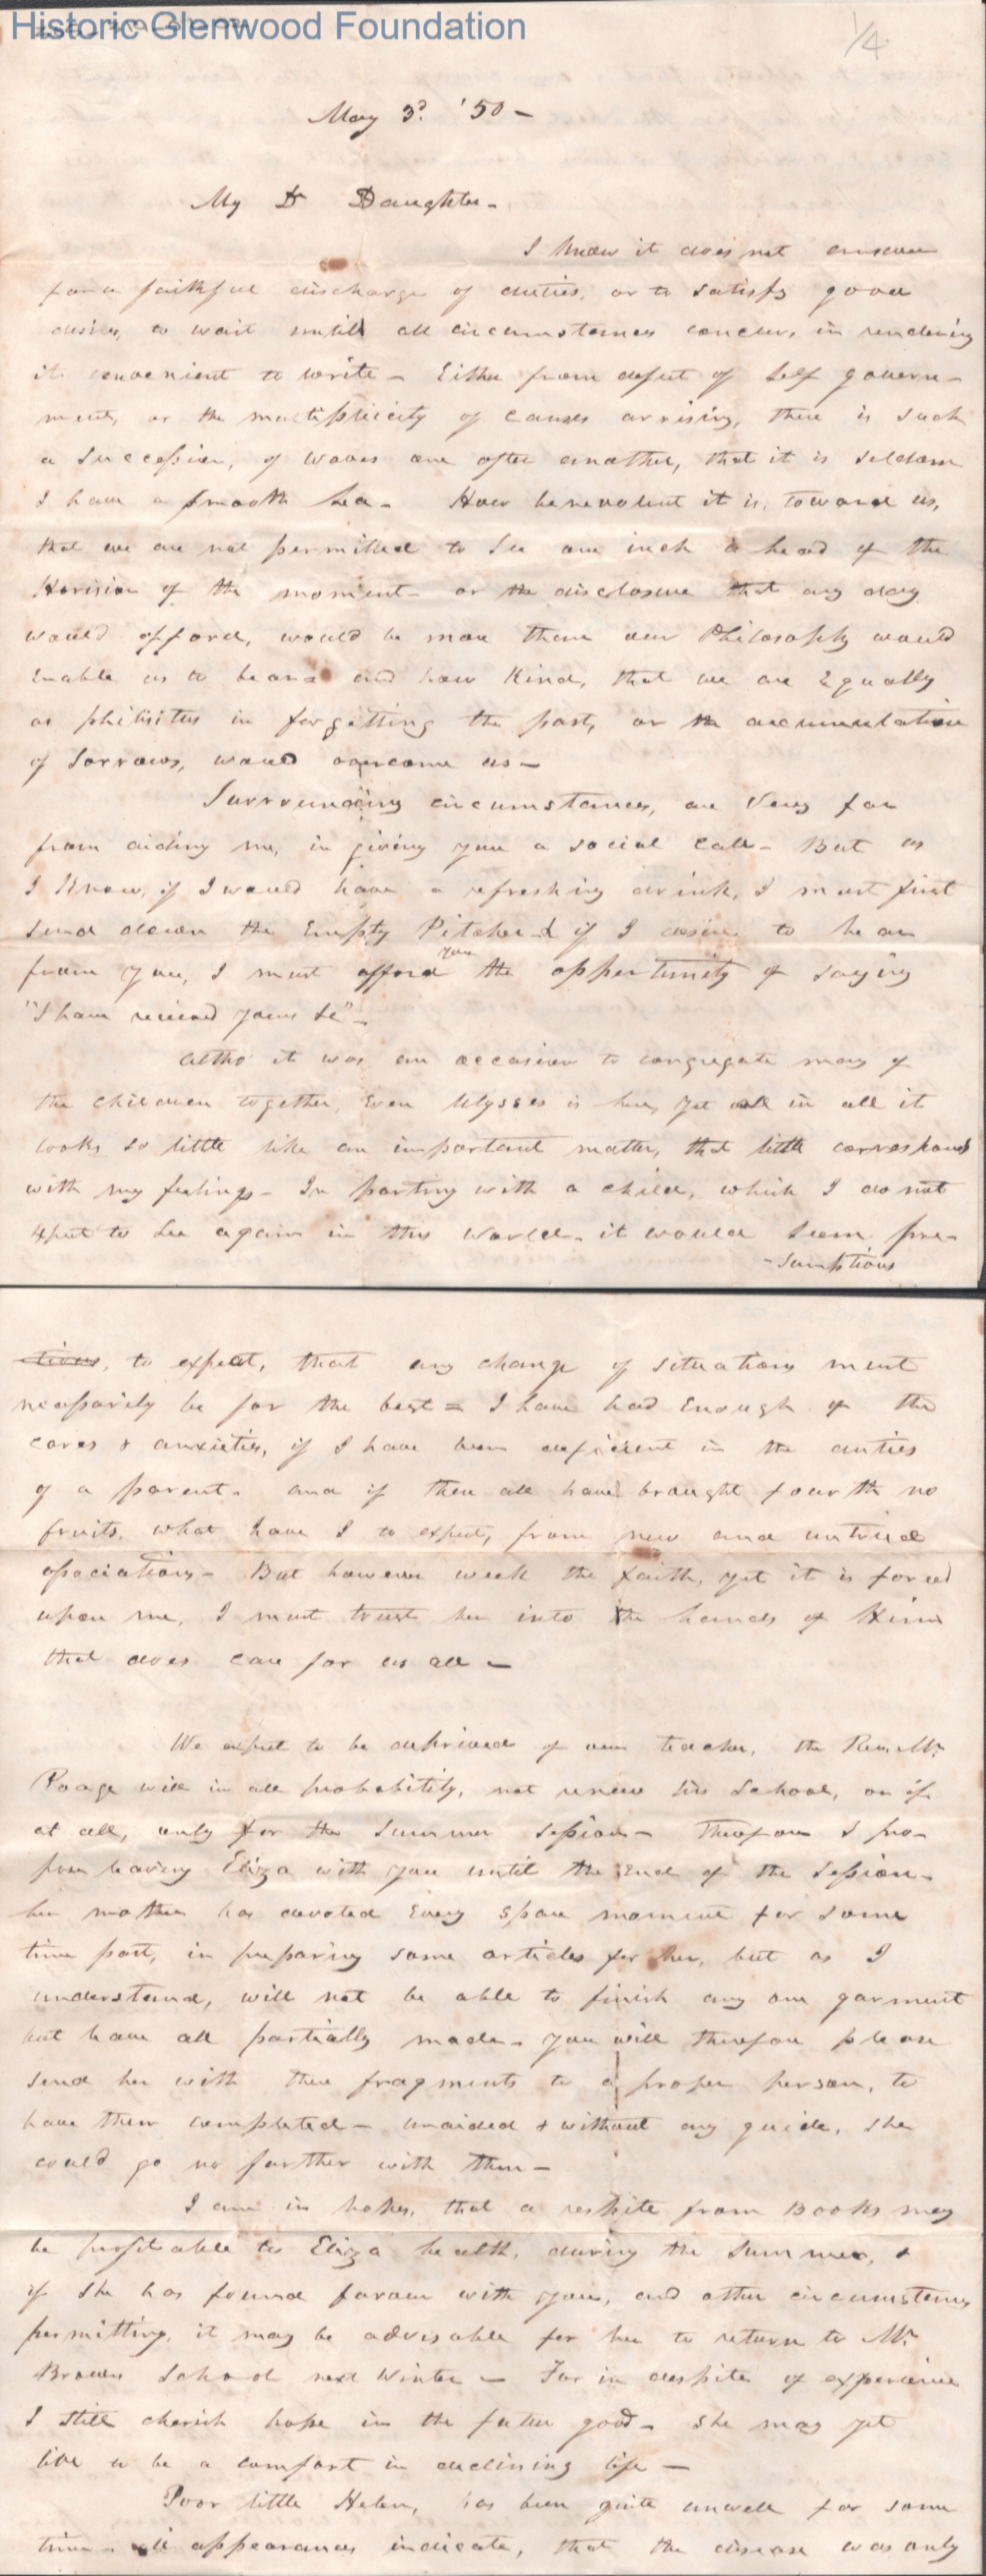 Historic Glenwood Foundation
1/4
May 3d. '50 –
My Dr Daughter –
I know it does not answer
for a faithful discharge of duties, or to satisfy good
desires, to wait untill all circumstances concur, in rendering
it convenient to write – Either from defect of self govern-
ment, or the multiplicity of causes arrising, there is such
a succession, of waves one after another, that it is seldom
I have a smooth sea – How benevolent it is, toward us,
that we are not permitted to see one inch a head of the
Horision of the moment – or the disclosure that any day
would afford, would be more than our Philosophy would
Enable us to bear = and how Kind, that we are Equally
as in forgetting the past, or the accumulation
of Sorrows, would overcome us –
Surrounding circumstances, are Very far
from aiding me, in giving you a social call – But as
I Know, if I would have a refreshing drink, I must first
send down the Empty Pitcher & if I desire to hear
from you, I must afford you the oppertunity of saying
"I have received yours &c" –
Altho' it was an occasion to congregate many of
the children together, Even Ulysses is here, yet all in all it
looks so little like an important matter, that little corresponds
with my feelings – In parting with a child, which I do not
Expect to see again in this World – it would seem pre-
-sumptious
tious, to expect, that any change of situations must
necessarily be for the best = I have had Enough of the
cares & anxieties, if I have been deficient in the duties
of a parent – and if these all have brought fourth no
fruits, what have I to expect, from new and untried
associations – But however week the faith, yet it is forced
upon me, I must trust her into the hands of Him
that does care for us all –
We expect to be deprived of our teacher, the Rev. Mr.
Poage will in all probability, not renew his School, or if
at all, only for the Summer session – Therefore I pro-
pose leaving Eliza with you until the End of the Session –
her mother has devoted Every spare moment for some
time past, in preparing some articles for her, but as I
understand, will not be able to finish any one garment
but have all partially made – you will therefore please
send her with these fragments to a proper person, to
have them completed – unaided & without any guide, she
could go no farther with them –
I am in hopes, that a respite from Books may
be profitable to Eliza health, during the Summer, &
if she has found favour with you, and other circumstances
permitting, it may be advisable for her to return to Mr.
Browns School next Winter – For in despite of experience
I still cherish hope in the future good – she may yet
live to be a comfort in declining life –
Poor little Helen, has been quite unwell for some
time – all appearances indicate, that the disease was only